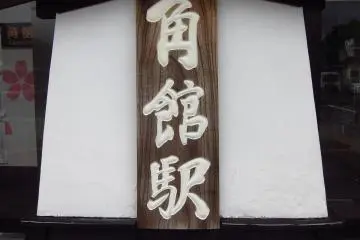 角館駅